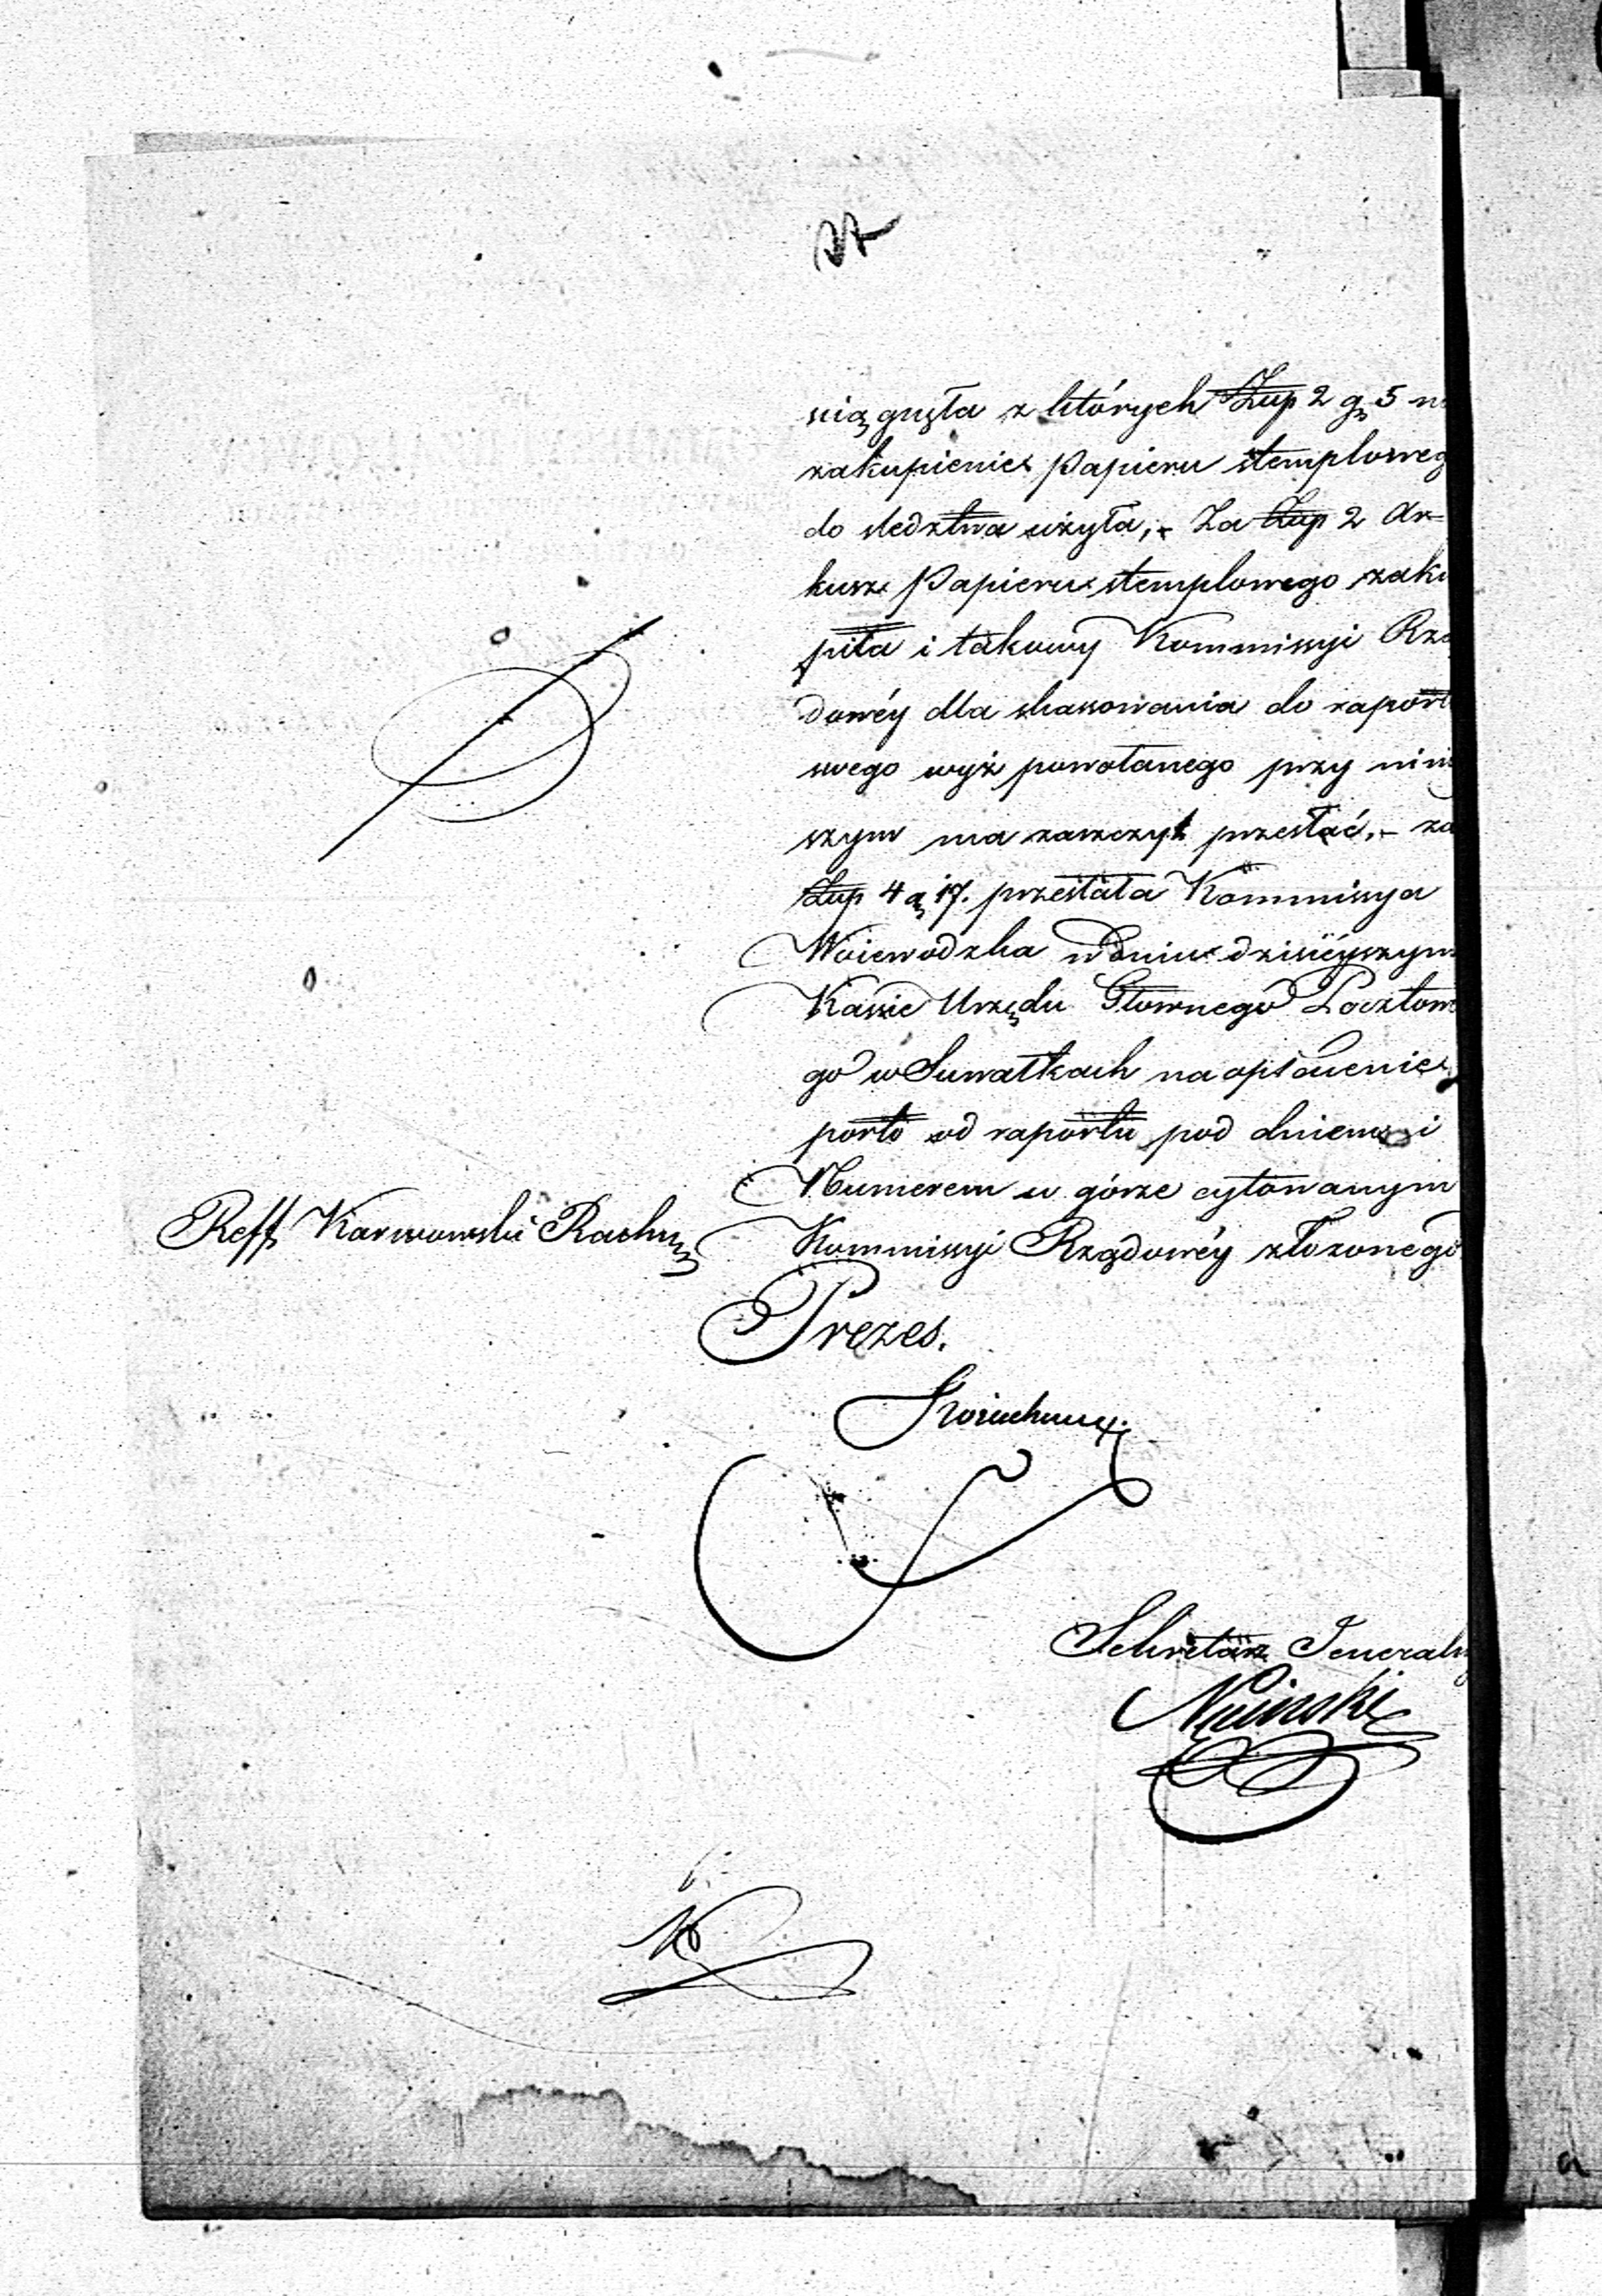 27
ciągnęła z których Złłp 2 g 5 n
zakupienie Papieru stemploweg
do sledztwa użyła,- Za Złłp 2 Ar-
kusz Papieru stemplowego zaku
piła i takowy Kommissyi Rzą
dowéy dla skassowania do raport
swego wyż powołanego przy nini
szym ma zaszczyt przesłać,- za
Złłp 4 g 17. przesłała Kommissya
Woiewodzka w dniu dzisiéyszym
Kassie Urzędu Głownego Pocztowe
go w Suwałkach na opłacenie
porto od raportu pod dniem i
Numerem w górze cytowanym
Reff Karwowski Rachm
Kommissyi Rządowéy złożonego
Prezes.
Sekretarz Jeneralny